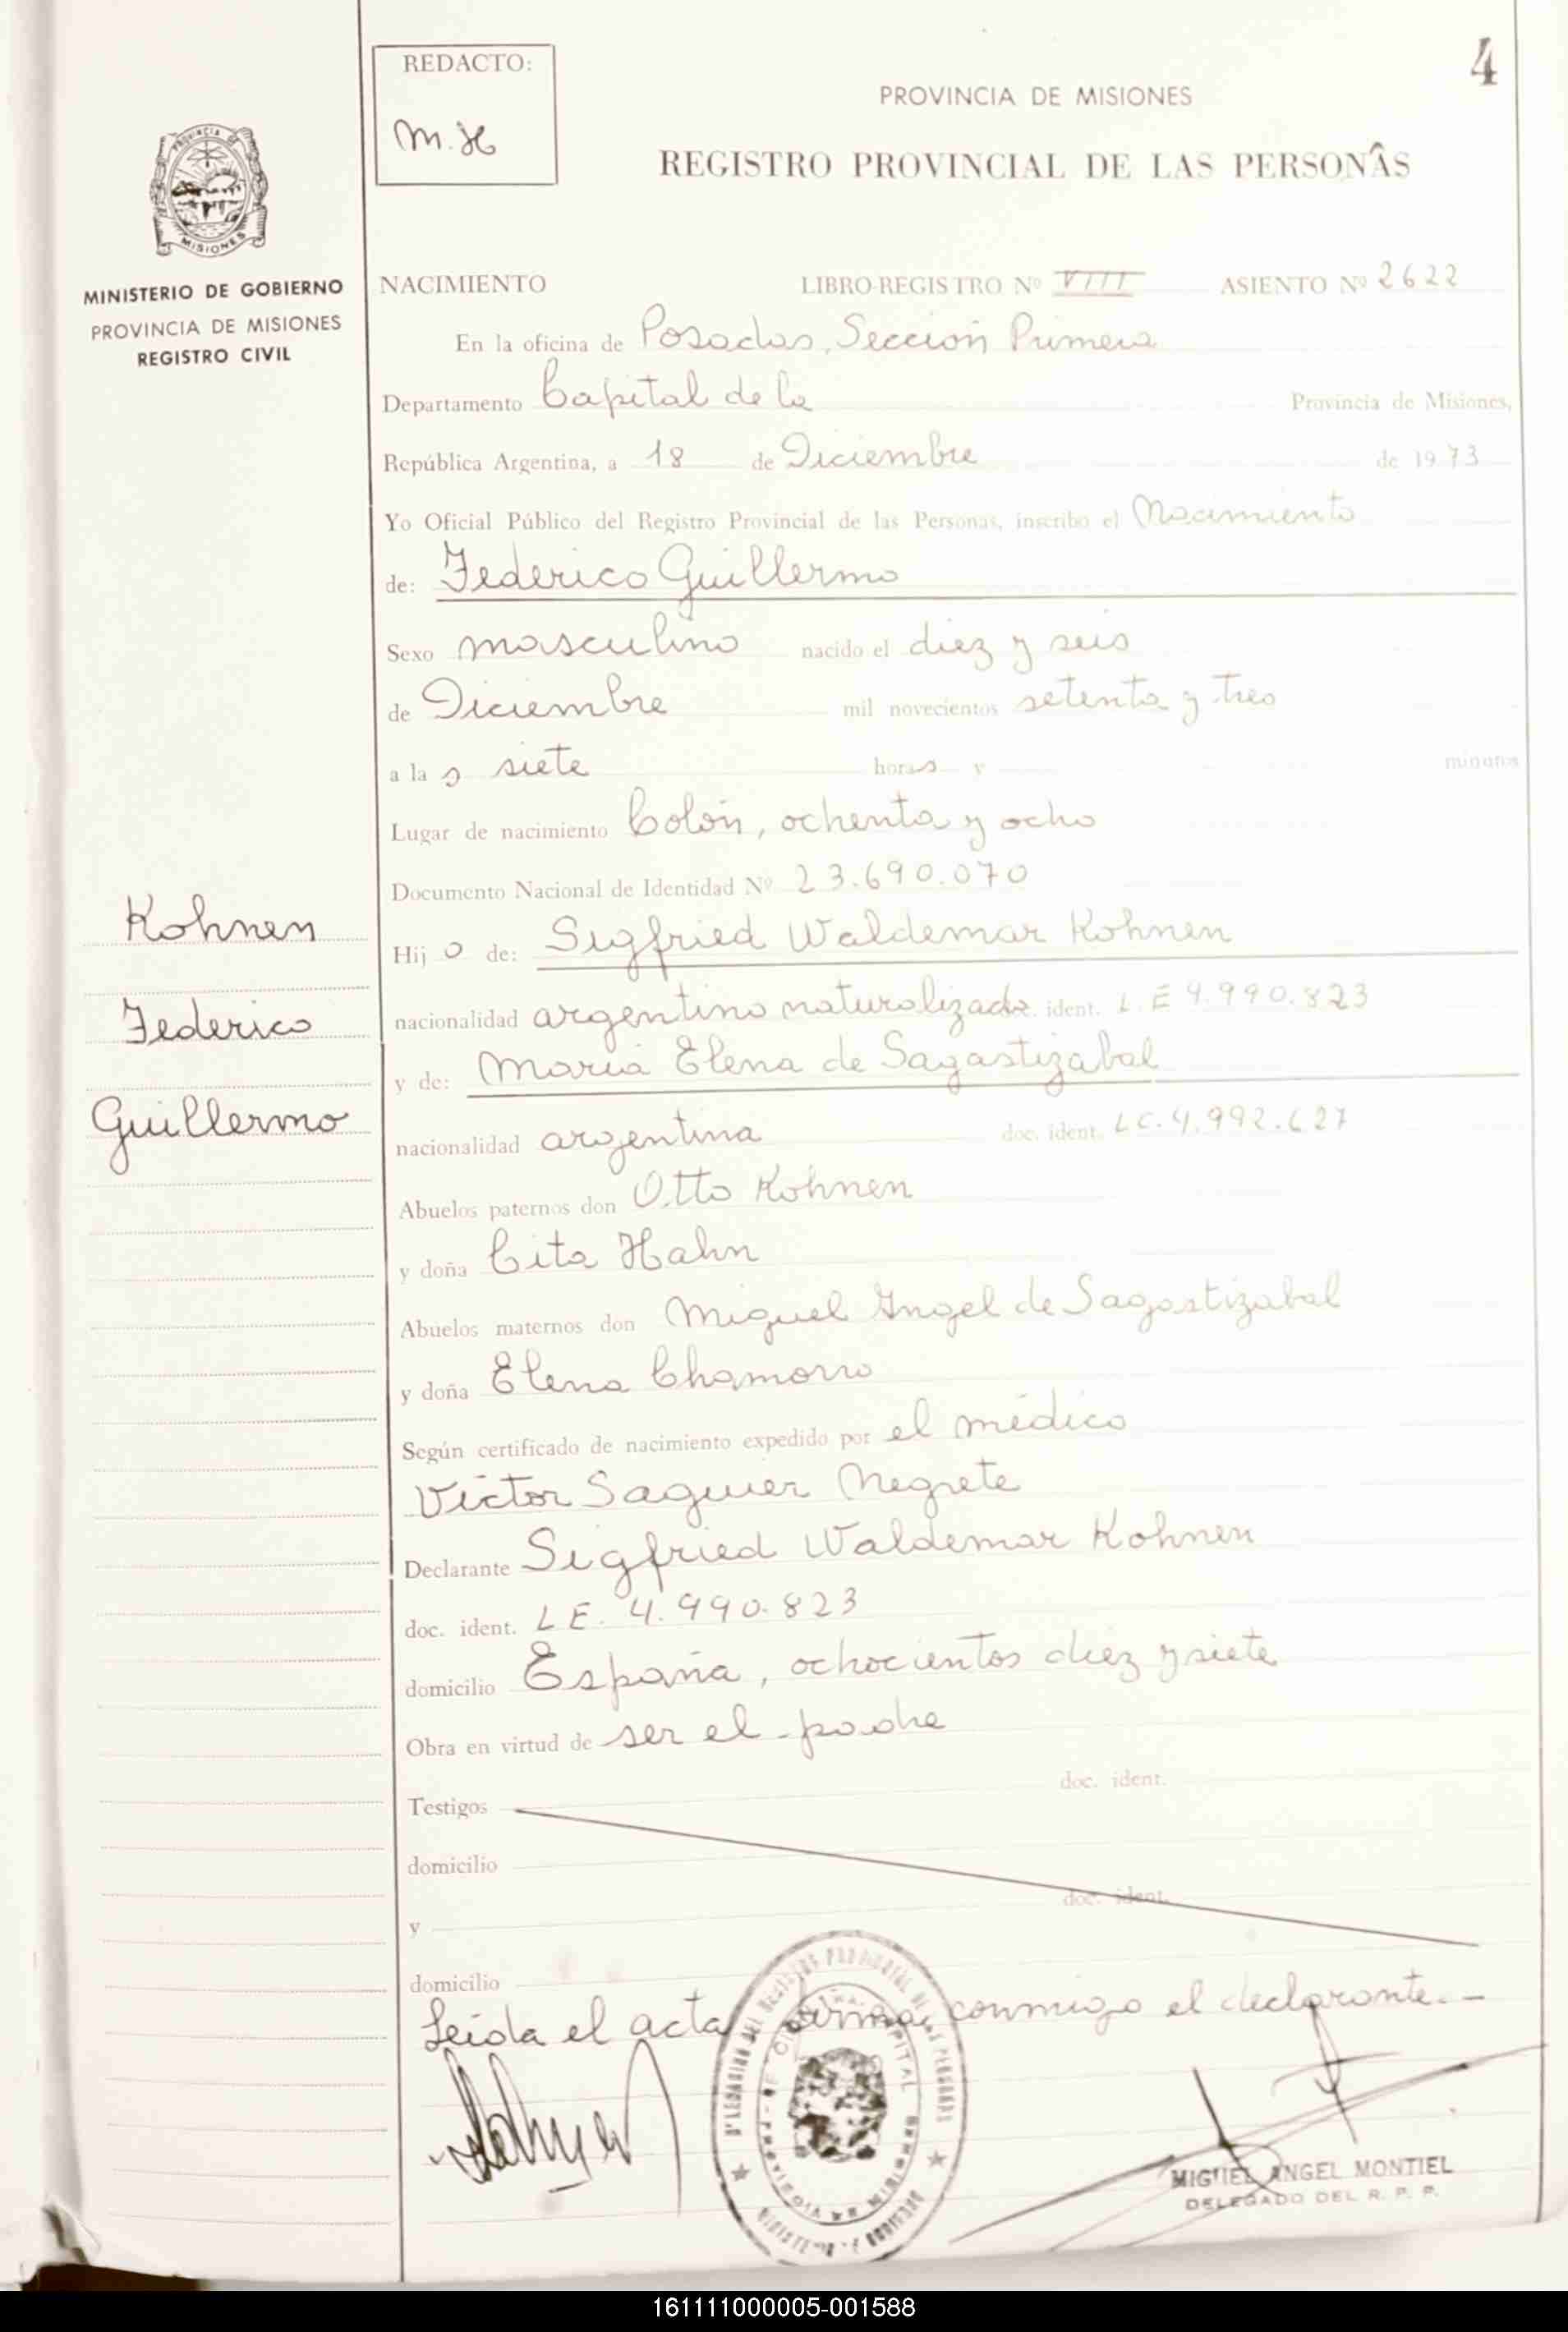 4
REDACTO:
M.H
PROVINCIA DE MISIONES
REGISTRO PROVINCIAL DE LAS PERSONAS
PROVINCIA DE
MISIONES
MINISTERIO DE GOBIERNO
PROVINCIA DE MISIONES
REGISTRO CIVIL
NACIMIENTO LIBRO-REGISTRO Nº VIII ASIENTO Nº 2622
En la oficina de Posadas, Sección Primera
Departamento Capital de la Provincia de Misiones,
República Argentina, a 18 de Diciembre de 1973
Yo Oficial Público del Registro Provincial de las Personas, inscribo el Nacimiento
de: Federico Guillermo
Sexo masculino nacido el diez y seis
de Diciembre mil novecientos setenta y tres
a las siete horas y minutos
Lugar de nacimiento Colón, ochenta y ocho
Documento Nacional de Identidad Nº 23.690.070
Kohnen
Federico
Guillermo
Hijo de: Sigfried Waldemar Kohnen
nacionalidad argentino naturalizado. ident. L.E 4.990.823
y de: María Elena de Sagastizabal
nacionalidad argentina doc. ident. LC. 4.992.627
Abuelos paternos don Otto Kohnen
y doña Cita Hahn
Abuelos maternos don Miguel Angel de Sagastizabal
y doña Elena Chamorro
Según certificado de nacimiento expedido por el médico
Víctor Saguier Negrete
Declarante Sigfried Waldemar Kohnen
doc. ident. LE. 4.990.823
domicilio España, ochocientos diez y siete
Obra en virtud de ser el padre
doc. ident.
Testigos
domicilio
doc. ident.
y
domicilio
Leída el acta firma conmigo el declarante.-
MIGUEL ANGEL MONTIEL
DELEGADO DEL R. P. P.
161111000005-001588